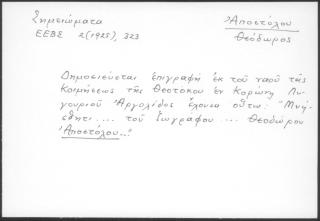 Σημειώματα
ΕΕΒΣ 2(1925), 323
Ἀποστόλου
Θεόδωρος
Δημοσιεύεται ἐπιγραφή ἐκ τοῦ ναοῦ τῆς
Κοιμήσεως τῆς Θεοτόκου ἐν Κορώνῃ Λυ-
γουριοῦ Ἀργολίδος ἔχουσα οὕτω: "Μνή-
σθητι.... τοῦ ζωγράφου.... Θεοδώρου
Ἀποστόλου..."